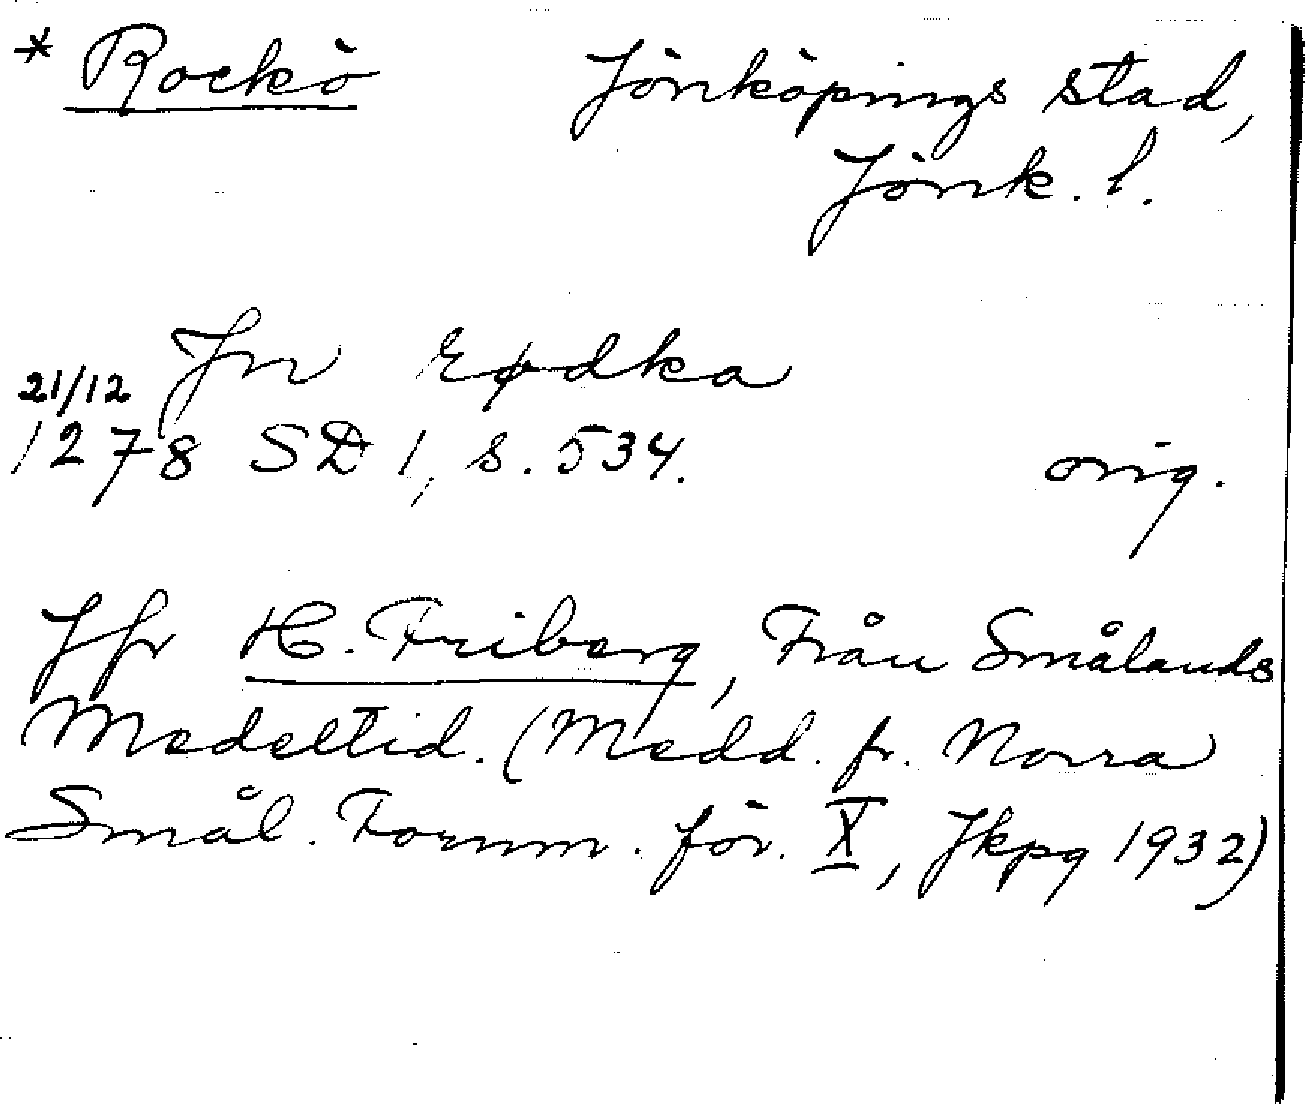 * Rockö Jönköpings stad,
Jönk. l.
Jn rødka
21/12
1278 SD 1, s. 534. orig.
Jfr H. Friberg, Från Smålands
Medeltid. (Medd. fr. Norra
Smål. Fornm. för. X, Jkpg 1932)